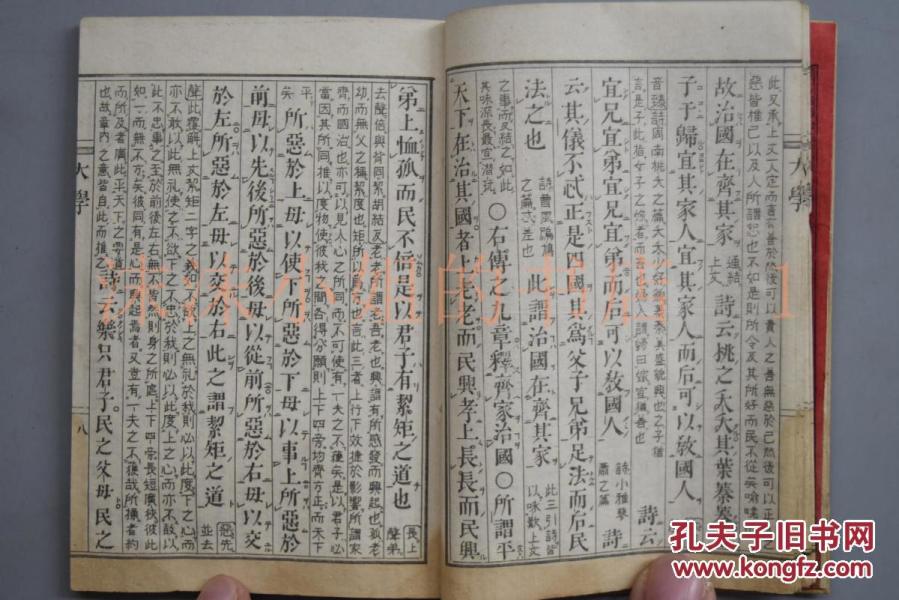 故治國在齊其家
通結上文
詩云桃之夭夭其葉蓁蓁
子于歸宜其家人宜其家人而后可以敎國人
詩云
宜兄宜弟宜兄宜弟而后可以敎國人
詩小雅蓼蕭之篇
詩
云其儀不忒正是四國其爲父子兄弟足法而后民
法之也
詩曹風鳲鳩之篇忒差也
此謂治國在齊其家
此三引詩皆以咏歎上文
之事而又結之如此
其味深長最宜潛玩
○右傳之九章釋齊家治國○所謂平
天下在治其國者上老老而民興孝上長長而民興
大學
弟上恤孤而民不倍是以君子有絜矩之道也
長上聲弟
去聲倍與背同絜胡結反老老所謂老吾老也興謂有所感發而興起也孤者
幼而無父之稱絜度也矩所以爲方也言此三者上行下效捷於影響所謂家
齊而國治也亦可以見人心之所同而不可使有一夫之不獲矣是以君子必
當因其所同推以度物使彼我之間各得分願則上下四旁均齊方正而天下
平矣
所惡於上毋以使下所惡於下毋以事上所惡於
前毋以先後所惡於後毋以從前所惡於右毋以交
於左所惡於左毋以交於右此之謂絜矩之道
惡先並去
聲此覆解上文絜矩二字之義如不欲上之無禮於我則必以此度下之心而
亦不敢以此無禮使之不欲下之不忠於我則必以此度上之心而亦不敢以
此不忠事之至於前後左右無不皆然則身之所處上下四旁長短廣狹彼此
如一而無不方矣彼同有是心而興起焉者又豈有一夫之不獲哉所操者約
而所及者廣此平天下之要道
也故章內之意皆自此而推之
詩云樂只君子民之父母民之
大學
八
孔夫子旧书网
www.kongfz.com